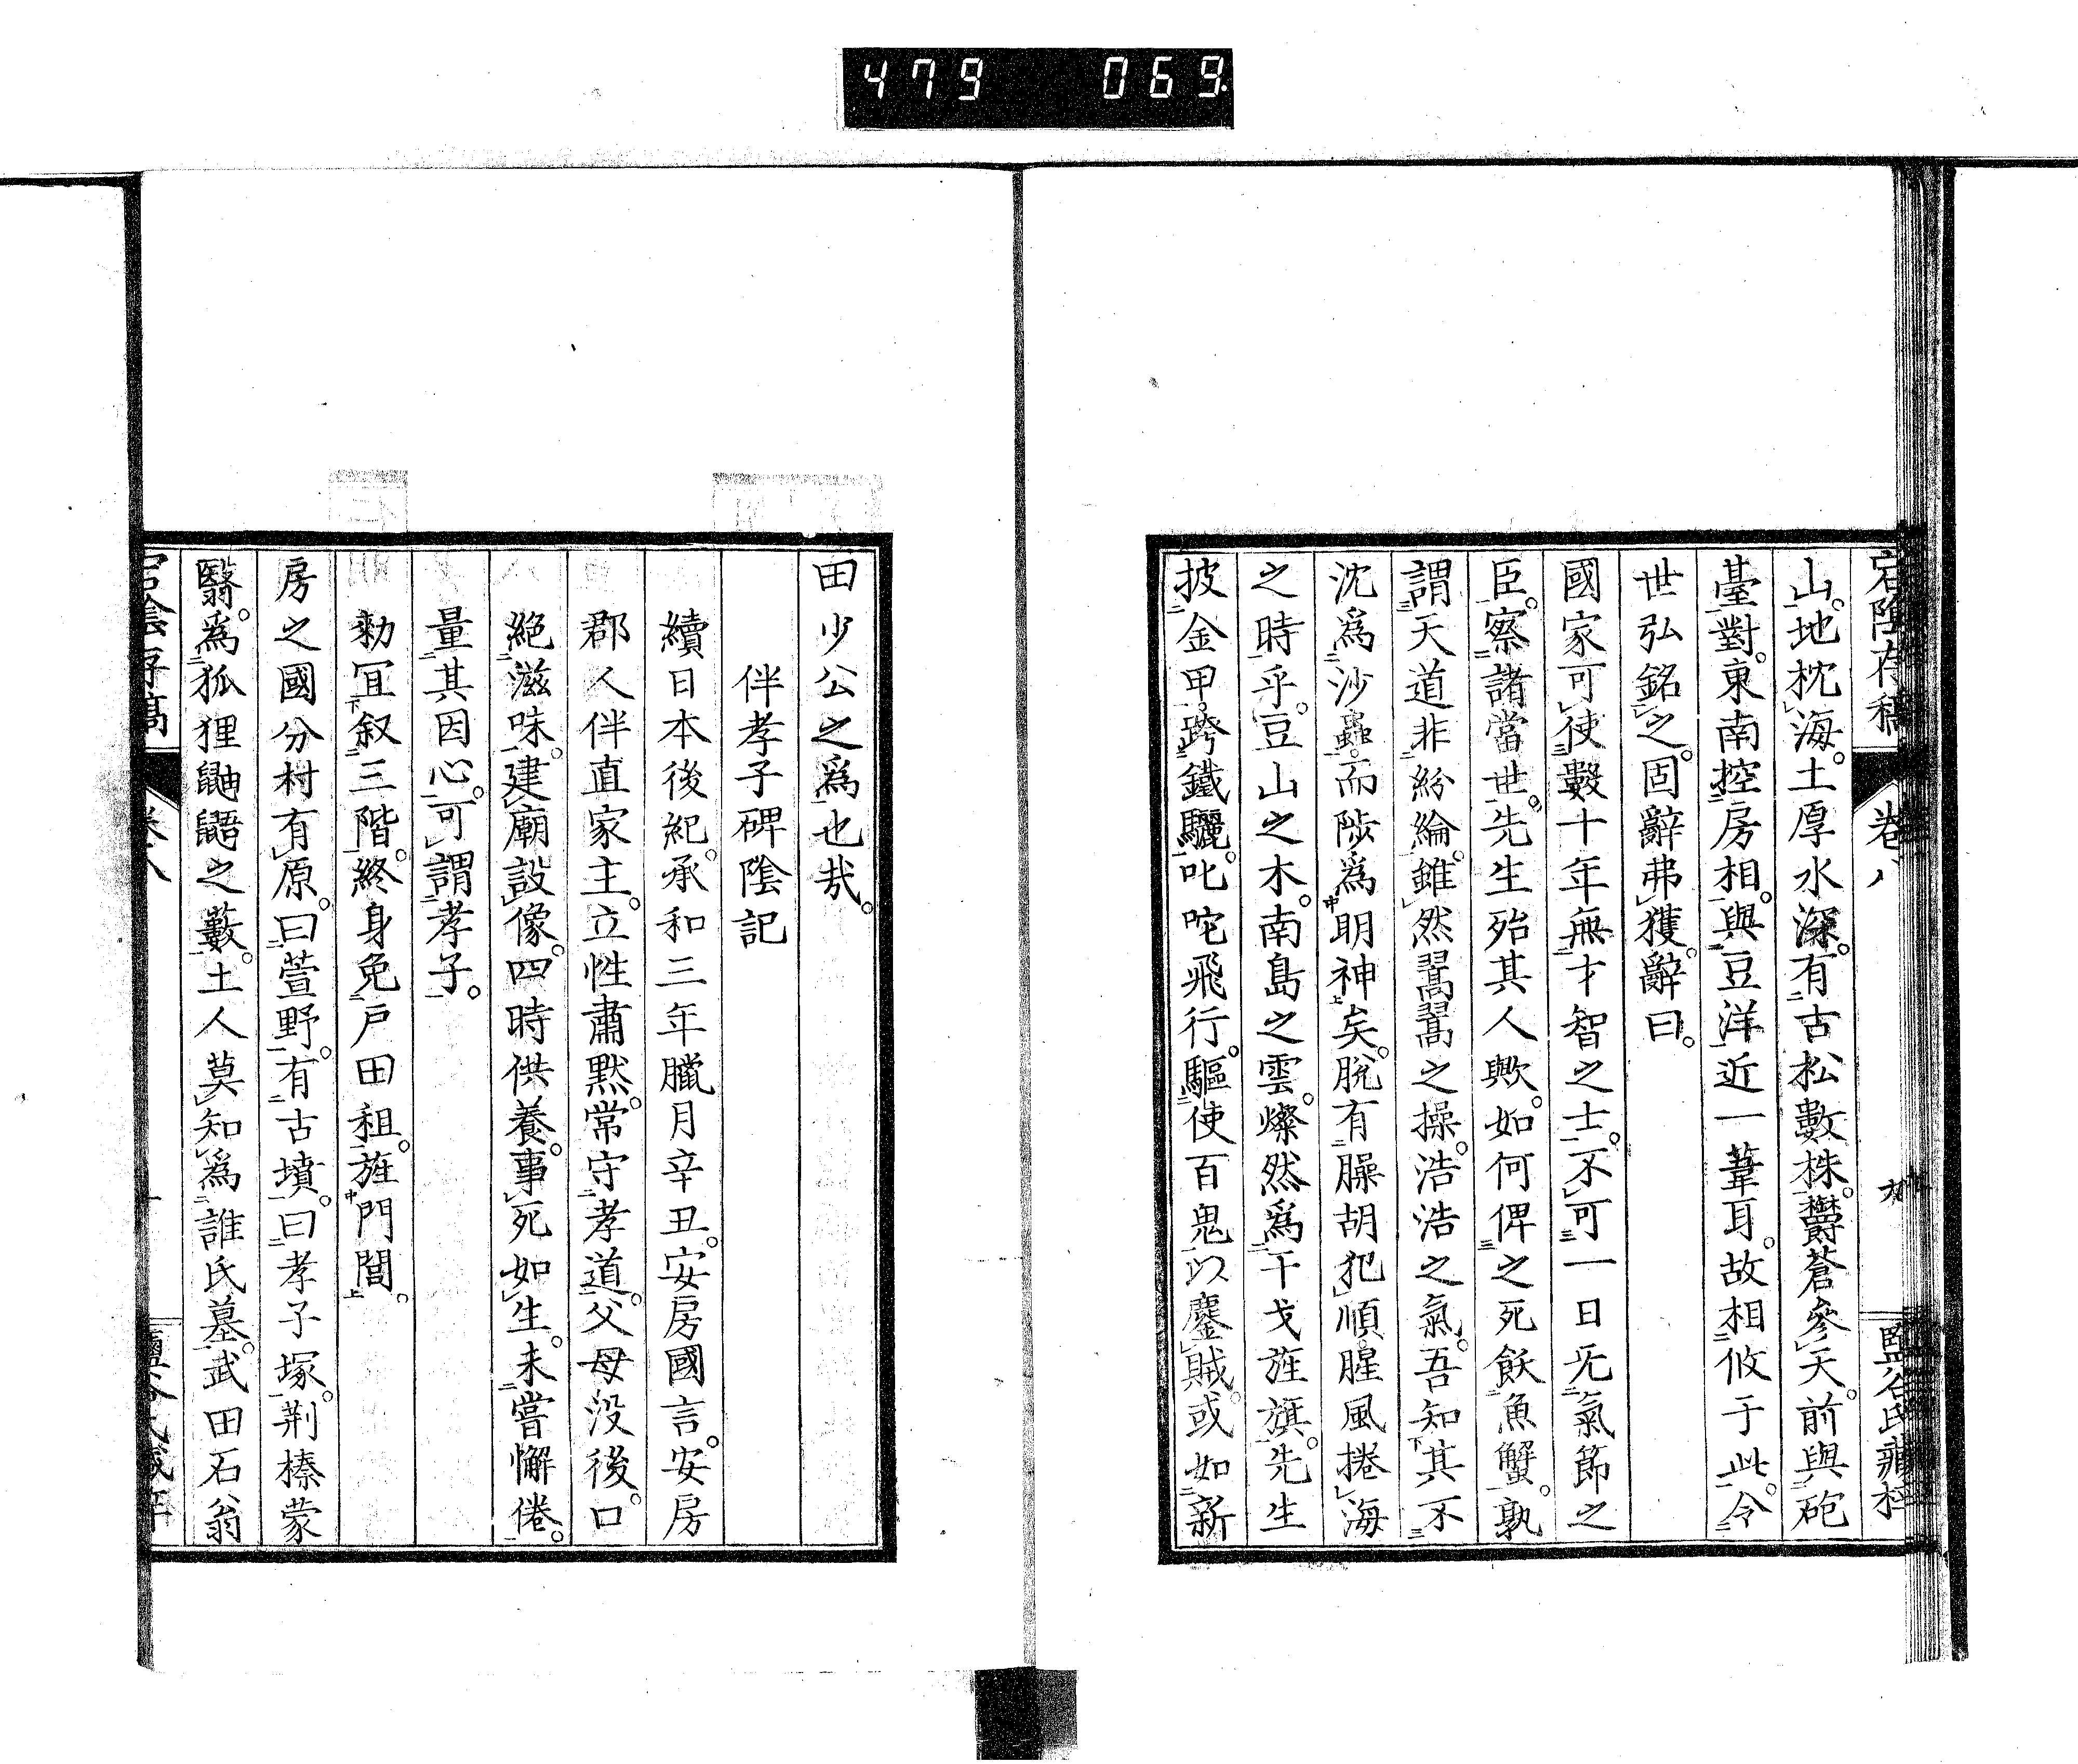 479 069
宕陰存稿 卷八
山。地枕海。土厚水深。有古松數株。欝蒼參天。前與砲
臺對。東南控房相。與豆洋近一葦耳。故相攸于此。令
世弘銘之。固辭弗獲。辭曰。
國家可使數十年無才智之士。不可一日无氣節之
臣。察諸當世。先生殆其人歟。如何俾之死飫魚蟹。孰
謂天道非紛綸。雖然翯翯之操。浩浩之氣。吾知其不
沈爲沙蟲。而陟爲明神矣。脫有臊胡犯順。腥風捲海
之時乎。豆山之木。南島之雲。燦然爲干戈旌旗。先生
披金甲。跨鐵驪。叱咤飛行。驅使百鬼以鏖賊。或如新
田少公之爲也哉。
伴孝子碑陰記
續日本後紀。承和三年臘月辛丑。安房國言。安房
郡人伴直家主。立性肅默。常守孝道。父母没後。口
絶滋味。建廟設像。四時供養。事死如生。未嘗懈倦。
量其因心。可謂孝子。
勑冝叙三階。終身免戸田租。旌門閭。
房之國分村有原。曰萱野。有古墳。曰孝子塚。荆榛蒙
翳。爲狐狸鼬鼯之藪。土人莫知爲誰氏墓。武田石翁